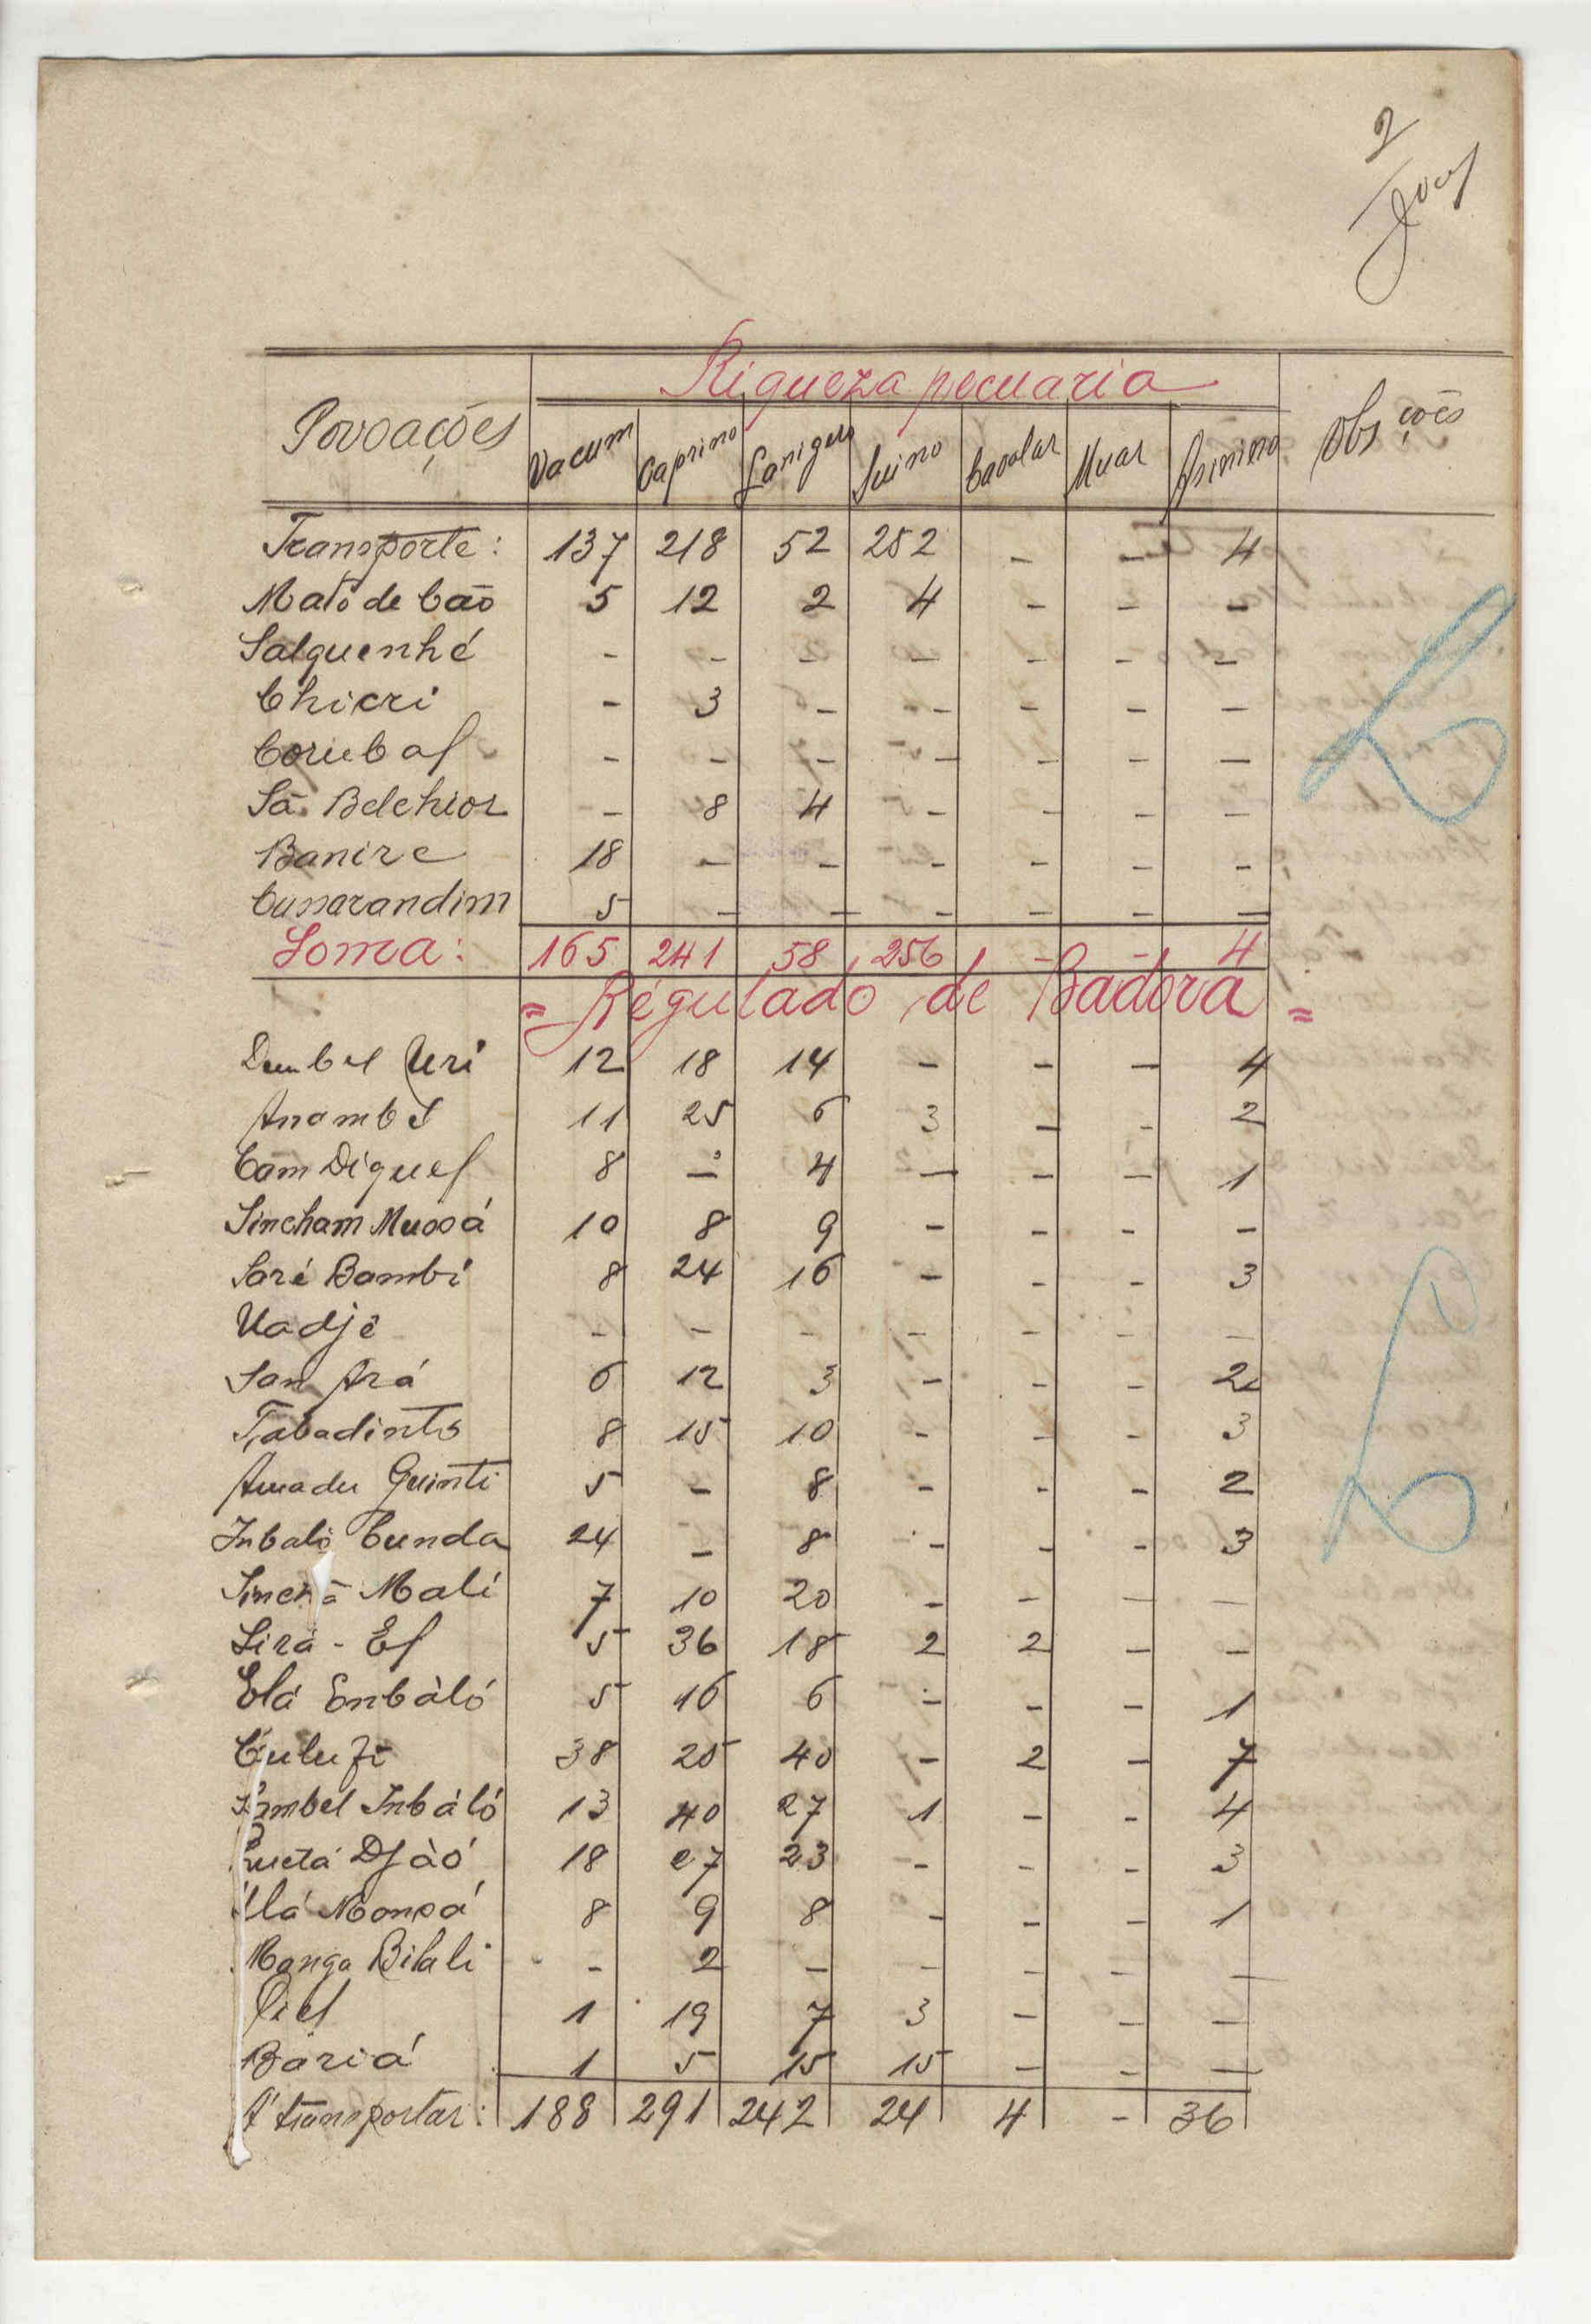 2
Riqueza pecuaria
Povoações Vacum Caprino Lanigero Suino Cavalar Muar Asinino Obsções
Transporte: 137 218 52 252 - - 4
Mato de Cão 5 12 2 4 - - -
Salquenhé - - - - - - -
Chicri - 3 - - - - -
Corubal - - - - - - -
Sã Belchior - 8 4 - - - -
Banire 18 - - - - - -
Cussarandim 5 - - - - - -
Soma: 165 241 58 256 - - 4
= Régulado de Badora =
Dembel Uri 12 18 14 - - - 4
Anambé 11 25 6 3 - - 2
Cam Diguel 8 - 4 - - - 1
Sincham Mussá 10 8 9 - - - -
Saré Bambi 8 24 16 - - - 3
Uadjé - - - - - - -
San Ará 6 12 3 - - - 2
Tabadinto 8 15 10 - - - 3
Amadu Quinti 5 - 8 - - - 2
Inbaló Cunda 24 - 8 - - - 3
Sinchã Mali 7 10 20 - - - -
Sirá - El 5 36 18 2 2 - -
Elá Enbàló 5 16 6 - - - 1
Culufi 38 25 40 - 2 - 7
Sambel Inbáló 13 40 27 1 - - 4
Quetá Djàó 18 27 23 - - - 3
Ilá Monsá 8 9 8 - - - 1
Manga Bilali - 2 - - - - -
Piel 1 19 7 3 - - -
Bariá 1 5 15 15 - - -
A transportar: 188 291 242 24 4 - 36